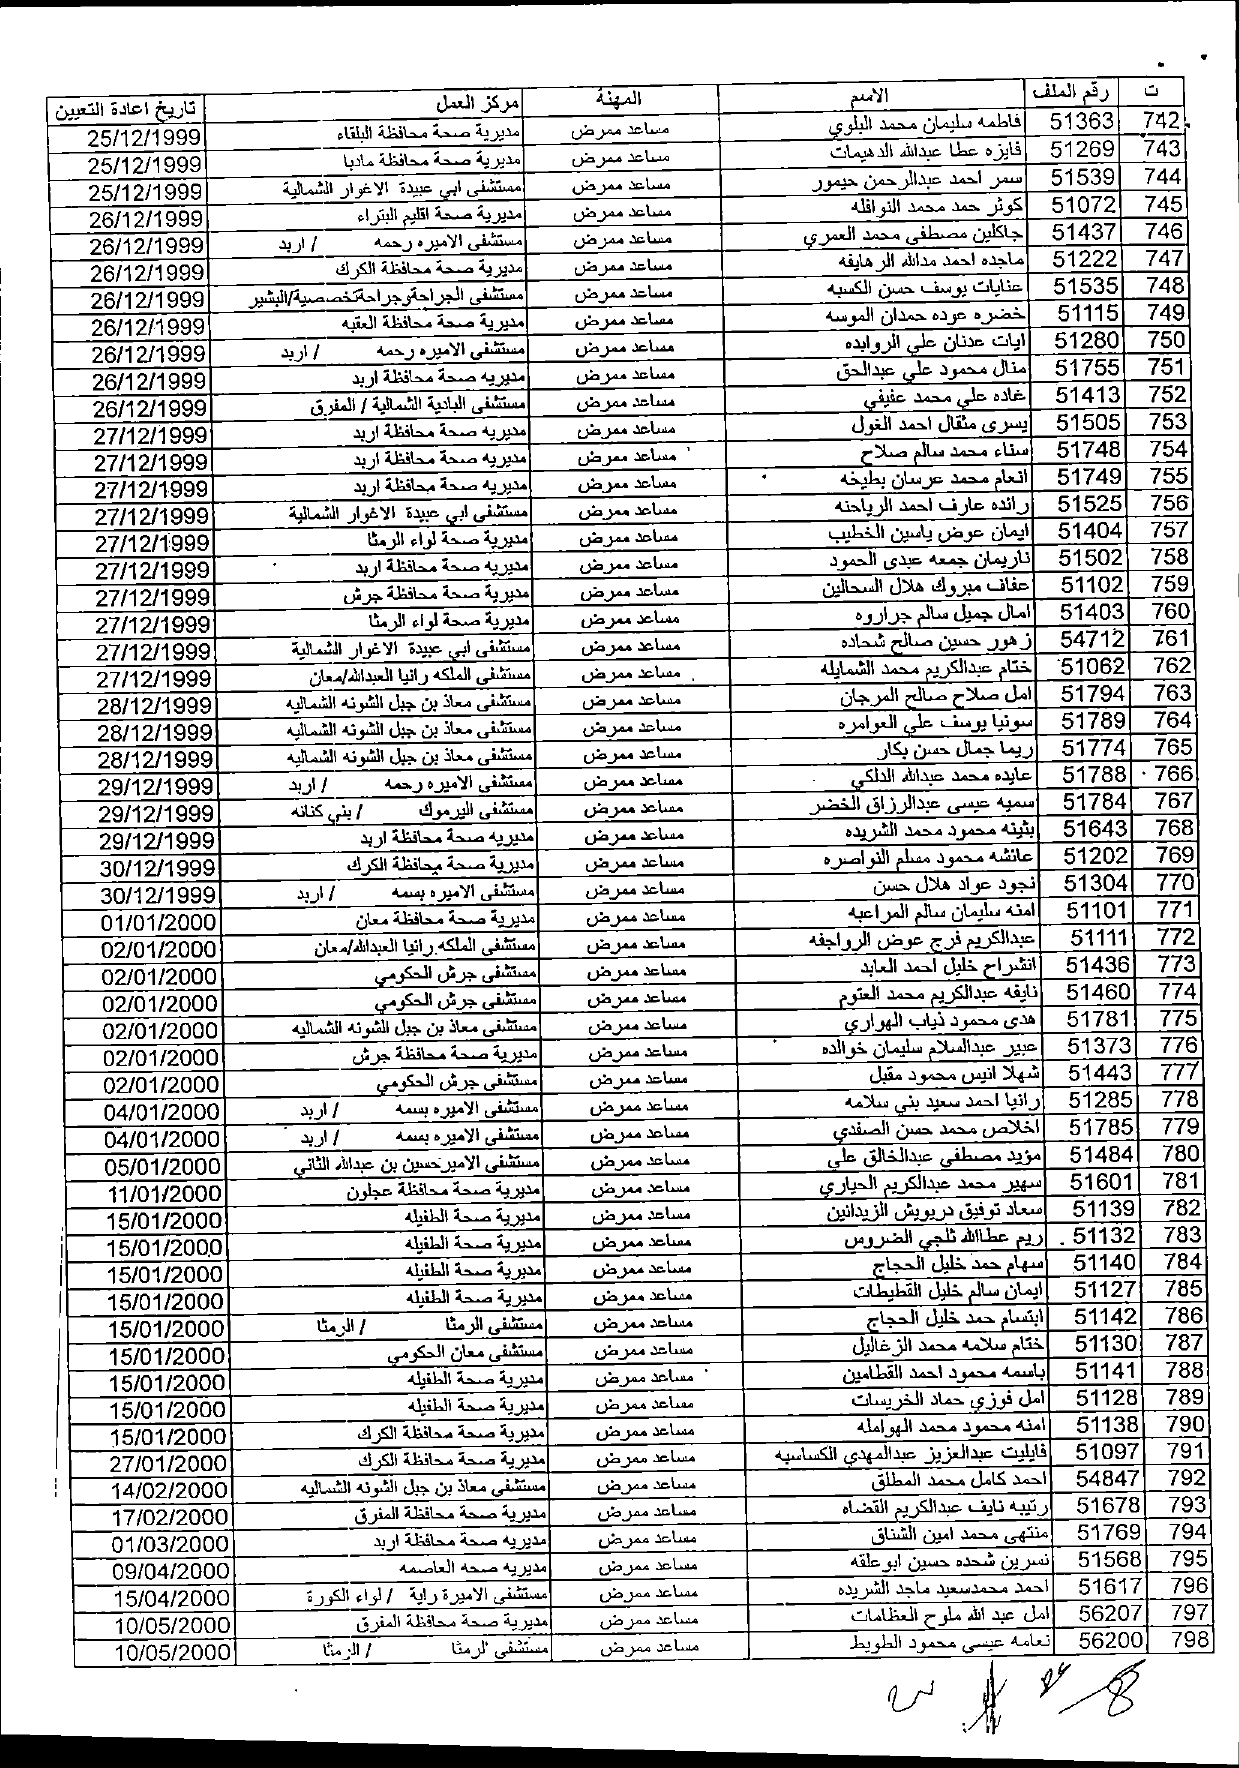 ت رقم الملف الاسم المهنة مركز العمل تاريخ اعادة التعيين
742 51363 فاطمه سليمان محمد البلوي مساعد ممرض مديرية صحة محافظة البلقاء 25/12/1999
743 51269 فايزه عطا عبدالله الدهيمات مساعد ممرض مديرية صحة محافظة مادبا 25/12/1999
744 51539 سمر احمد عبدالرحمن حيمور مساعد ممرض مستشفى ابي عبيدة الاغوار الشمالية 25/12/1999
745 51072 كوثر حمد محمد النوافله مساعد ممرض مديرية صحة اقليم البتراء 26/12/1999
746 51437 جاكلين مصطفى محمد العمري مساعد ممرض مستشفى الاميره رحمه / اربد 26/12/1999
747 51222 ماجده احمد مدالله الرهايفه مساعد ممرض مديرية صحة محافظة الكرك 26/12/1999
748 51535 عنايات يوسف حسن الكسبه مساعد ممرض مستشفى الجراحةوجراحةتخصصية/البشير 26/12/1999
749 51115 خضره عوده حمدان الموسه مساعد ممرض مديرية صحة محافظة العقبه 26/12/1999
750 51280 ايات عدنان علي الروابده مساعد ممرض مستشفى الاميره رحمه / اربد 26/12/1999
751 51755 منال محمود علي عبدالحق مساعد ممرض مديريه صحة محافظة اربد 26/12/1999
752 51413 غاده علي محمد عفيفي مساعد ممرض مستشفى البادية الشمالية / المفرق 26/12/1999
753 51505 يسرى مثقال احمد الغول مساعد ممرض مديريه صحة محافظة اربد 27/12/1999
754 51748 سناء محمد سالم صلاح مساعد ممرض مديريه صحة محافظة اربد 27/12/1999
755 51749 انعام محمد عرسان بطيخه مساعد ممرض مديريه صحة محافظة اربد 27/12/1999
756 51525 رائده عارف احمد الرياحنه مساعد ممرض مستشفى ابي عبيدة الاغوار الشمالية 27/12/1999
757 51404 ايمان عوض ياسين الخطيب مساعد ممرض مديرية صحة لواء الرمثا 27/12/1999
758 51502 ناريمان جمعه عبدى الحمود مساعد ممرض مديريه صحة محافظة اربد 27/12/1999
759 51102 عفاف مبروك هلال السحالين مساعد ممرض مديرية صحة محافظة جرش 27/12/1999
760 51403 امال جميل سالم جراروه مساعد ممرض مديرية صحة لواء الرمثا 27/12/1999
761 54712 زهور حسين صالح شحاده مساعد ممرض مستشفى ابي عبيدة الاغوار الشمالية 27/12/1999
762 51062 ختام عبدالكريم محمد الشمايله مساعد ممرض مستشفى الملكه رانيا العبدالله/معان 27/12/1999
763 51794 امل صلاح صالح المرجان مساعد ممرض مستشفى معاذ بن جبل الشونه الشماليه 28/12/1999
764 51789 سونيا يوسف علي العوامره مساعد ممرض مستشفى معاذ بن جبل الشونه الشماليه 28/12/1999
765 51774 ريما جمال حسن بكار مساعد ممرض مستشفى معاذ بن جبل الشونه الشماليه 28/12/1999
766 51788 عايده محمد عبدالله الدلكي مساعد ممرض مستشفى الاميره رحمه / اربد 29/12/1999
767 51784 سميه عيسى عبدالرزاق الخضر مساعد ممرض مستشفى اليرموك / بني كنانه 29/12/1999
768 51643 بثينه محمود محمد الشريده مساعد ممرض مديريه صحة محافظة اربد 29/12/1999
769 51202 عائشه محمود مسلم النواصره مساعد ممرض مديرية صحة محافظة الكرك 30/12/1999
770 51304 نجود عواد هلال حسن مساعد ممرض مستشفى الاميره بسمه / اربد 30/12/1999
771 51101 امنه سليمان سالم المراعبه مساعد ممرض مديرية صحة محافظة معان 01/01/2000
772 51111 عبدالكريم فرج عوض الرواجفه مساعد ممرض مستشفى الملكه رانيا العبدالله/معان 02/01/2000
773 51436 انشراح خليل احمد العابد مساعد ممرض مستشفى جرش الحكومي 02/01/2000
774 51460 نايفه عبدالكريم محمد العتوم مساعد ممرض مستشفى جرش الحكومي 02/01/2000
775 51781 هدى محمود ذياب الهواري مساعد ممرض مستشفى معاذ بن جبل الشونه الشماليه 02/01/2000
776 51373 عبير عبدالسلام سليمان خوالده مساعد ممرض مديرية صحة محافظة جرش 02/01/2000
777 51443 شهلا انيس محمود مقبل مساعد ممرض مستشفى جرش الحكومي 02/01/2000
778 51285 رانيا احمد سعيد بني سلامه مساعد ممرض مستشفى الاميره بسمه / اربد 04/01/2000
779 51785 اخلاص محمد حسن الصفدي مساعد ممرض مستشفى الاميره بسمه / اربد 04/01/2000
780 51484 مؤيد مصطفى عبدالخالق علي مساعد ممرض مستشفى الاميرحسين بن عبدالله الثاني 05/01/2000
781 51601 سهير محمد عبدالكريم الحياري مساعد ممرض مديرية صحة محافظة عجلون 11/01/2000
782 51139 سعاد توفيق درويش الزيدانين مساعد ممرض مديرية صحة الطفيله 15/01/2000
783 51132 ريم عطاالله ثلجي الضروس مساعد ممرض مديرية صحة الطفيله 15/01/2000
784 51140 سهام حمد خليل الحجاج مساعد ممرض مديرية صحة الطفيله 15/01/2000
785 51127 ايمان سالم خليل القطيطات مساعد ممرض مديرية صحة الطفيله 15/01/2000
786 51142 ابتسام حمد خليل الحجاج مساعد ممرض مستشفى الرمثا / الرمثا 15/01/2000
787 51130 ختام سلامه محمد الزغاليل مساعد ممرض مستشفى معان الحكومي 15/01/2000
788 51141 باسمه محمود احمد القطامين مساعد ممرض مديرية صحة الطفيله 15/01/2000
789 51128 امل فوزي حماد الخريسات مساعد ممرض مديرية صحة الطفيله 15/01/2000
790 51138 امنه محمود محمد الهوامله مساعد ممرض مديرية صحة محافظة الكرك 15/01/2000
791 51097 فايليت عبدالعزيز عبدالمهدي الكساسبه مساعد ممرض مديرية صحة محافظة الكرك 27/01/2000
792 54847 احمد كامل محمد المطلق مساعد ممرض مستشفى معاذ بن جبل الشونه الشماليه 14/02/2000
793 51678 رتيبه نايف عبدالكريم القضاه مساعد ممرض مديرية صحة محافظة المفرق 17/02/2000
794 51769 منتهى محمد امين الشناق مساعد ممرض مديريه صحة محافظة اربد 01/03/2000
795 51568 نسرين شحده حسين ابوعلقه مساعد ممرض مديريه صحه العاصمه 09/04/2000
796 51617 احمد محمدسعيد ماجد الشريده مساعد ممرض مستشفى الاميرة راية / لواء الكورة 15/04/2000
797 56207 امل عبد الله ملوح العظامات مساعد ممرض مديرية صحة محافظة المفرق 10/05/2000
798 56200 نعامه عيسى محمود الطويط مساعد ممرض مستشفى الرمثا / الرمثا 10/05/2000